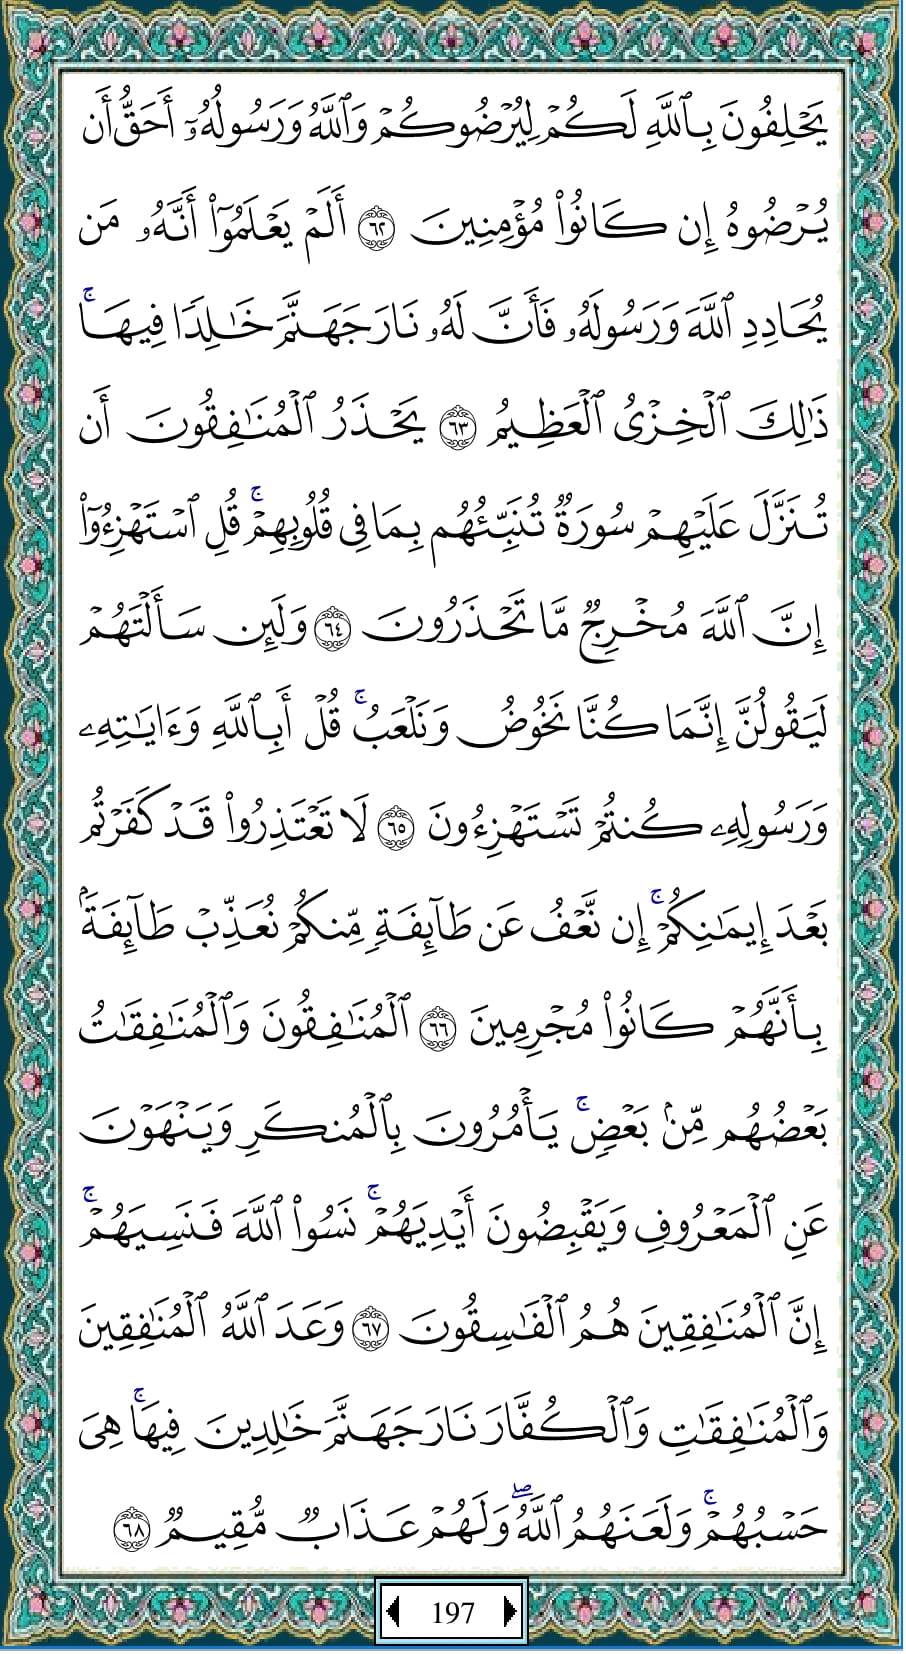 يَحۡلِفُونَ بِٱللَّهِ لَكُمۡ لِيُرۡضُوكُمۡ وَٱللَّهُ وَرَسُولُهُۥٓ أَحَقُّ أَن
يُرۡضُوهُ إِن كَانُواْ مُؤۡمِنِينَ ٦٢ أَلَمۡ يَعۡلَمُوٓاْ أَنَّهُۥ مَن
يُحَادِدِ ٱللَّهَ وَرَسُولَهُۥ فَأَنَّ لَهُۥ نَارَ جَهَنَّمَ خَٰلِدٗا فِيهَاۚ
ذَٰلِكَ ٱلۡخِزۡيُ ٱلۡعَظِيمُ ٦٣ يَحۡذَرُ ٱلۡمُنَٰفِقُونَ أَن
تُنَزَّلَ عَلَيۡهِمۡ سُورَةٞ تُنَبِّئُهُم بِمَا فِي قُلُوبِهِمۡۚ قُلِ ٱسۡتَهۡزِءُوٓاْ
إِنَّ ٱللَّهَ مُخۡرِجٞ مَّا تَحۡذَرُونَ ٦٤ وَلَئِن سَأَلۡتَهُمۡ
لَيَقُولُنَّ إِنَّمَا كُنَّا نَخُوضُ وَنَلۡعَبُۚ قُلۡ أَبِٱللَّهِ وَءَايَٰتِهِۦ
وَرَسُولِهِۦ كُنتُمۡ تَسۡتَهۡزِءُونَ ٦٥ لَا تَعۡتَذِرُواْ قَدۡ كَفَرۡتُم
بَعۡدَ إِيمَٰنِكُمۡۚ إِن نَّعۡفُ عَن طَآئِفَةٖ مِّنكُمۡ نُعَذِّبۡ طَآئِفَةَۢ
بِأَنَّهُمۡ كَانُواْ مُجۡرِمِينَ ٦٦ ٱلۡمُنَٰفِقُونَ وَٱلۡمُنَٰفِقَٰتُ
بَعۡضُهُم مِّنۢ بَعۡضٖۚ يَأۡمُرُونَ بِٱلۡمُنكَرِ وَيَنۡهَوۡنَ
عَنِ ٱلۡمَعۡرُوفِ وَيَقۡبِضُونَ أَيۡدِيَهُمۡۚ نَسُواْ ٱللَّهَ فَنَسِيَهُمۡۚ
إِنَّ ٱلۡمُنَٰفِقِينَ هُمُ ٱلۡفَٰسِقُونَ ٦٧ وَعَدَ ٱللَّهُ ٱلۡمُنَٰفِقِينَ
وَٱلۡمُنَٰفِقَٰتِ وَٱلۡكُفَّارَ نَارَ جَهَنَّمَ خَٰلِدِينَ فِيهَاۚ هِيَ
حَسۡبُهُمۡۚ وَلَعَنَهُمُ ٱللَّهُۖ وَلَهُمۡ عَذَابٞ مُّقِيمٞ ٦٨
197